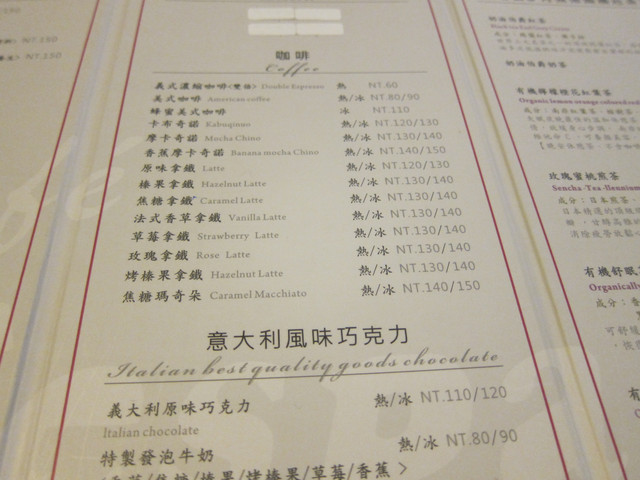 NT.150
NT.150
咖啡
Coffee
義式濃縮咖啡<雙份> Double Espresso 熱 NT.60
美式咖啡 American coffee 熱/冰 NT.80/90
蜂蜜美式咖啡 冰 NT.110
卡布奇諾 Kabuqinuo 熱/冰 NT.120/130
摩卡奇諾 Mocha Chino 熱/冰 NT.130/140
香蕉摩卡奇諾 Banana mocha Chino 熱/冰 NT.140/150
原味拿鐵 Latte 熱/冰 NT.120/130
榛果拿鐵 Hazelnut Latte 熱/冰 NT.130/140
焦糖拿鐵 Caramel Latte 熱/冰 NT.130/140
法式香草拿鐵 Vanilla Latte 熱/冰 NT.130/140
草莓拿鐵 Strawberry Latte 熱/冰 NT.130/140
玫瑰拿鐵 Rose Latte 熱/冰 NT.130/140
烤榛果拿鐵 Hazelnut Latte 熱/冰 NT.130/140
焦糖瑪奇朵 Caramel Macchiato 熱/冰 NT.140/150
意大利風味巧克力
Italian best quality goods chocolate
義大利原味巧克力 熱/冰 NT.110/120
Italian chocolate
特製發泡牛奶 熱/冰 NT.80/90
焦糖/榛果/烤榛果/草莓/香蕉 >
玫瑰蜜桃煎茶
Sencha-Tea-llennium
成分：日本煎茶、
日本精選的頂級
有機舒眠
Organically
成分：香
可舒緩